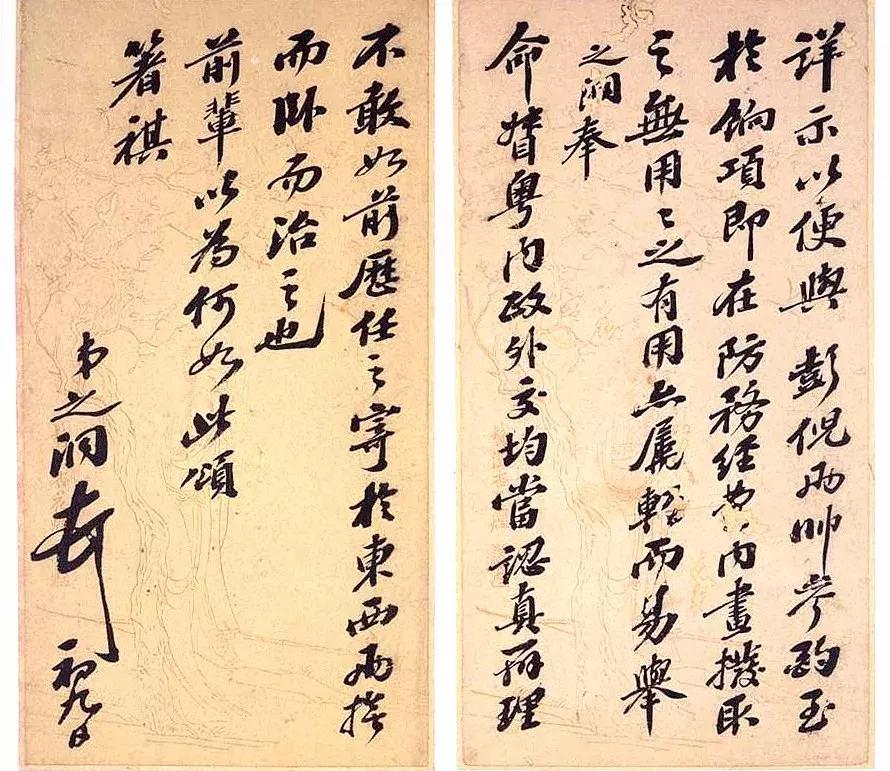 詳示以便與 彭倪兩帥參酌至
於餉項即在防務經費內畫撥取
之無用〻之有用亦屬輕而易舉
之洞奉
命督粤內政外交均當認真辦理
不敢如前歷任之寄於東西兩
而卧而治之也
前輩以為何如此頌
箸祺
弟之洞 初九日